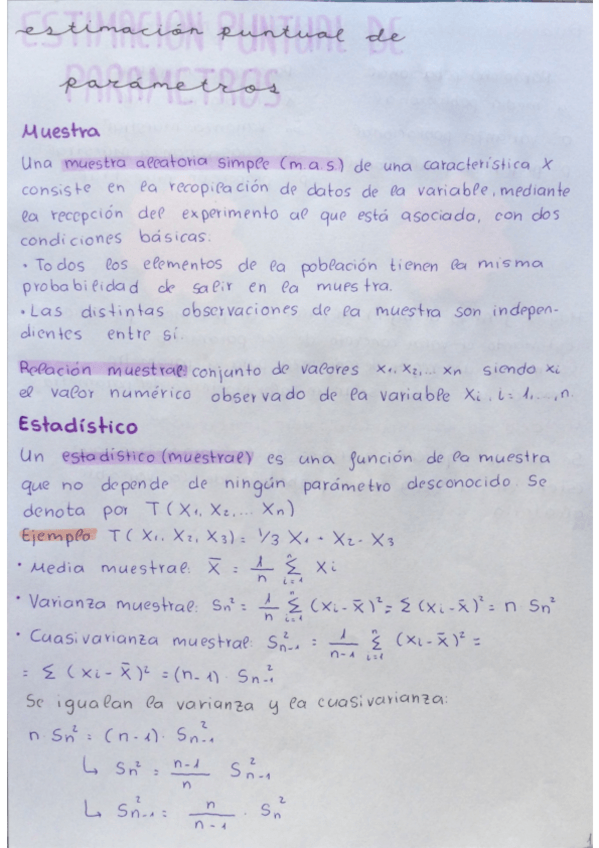 estimación puntual de
parámetros
ESTIMACIÓN PUNTUAL DE
PARÁMETROS
Muestra
Una muestra aleatoria simple (m.a.s.) de una característica X
consiste en la recopilación de datos de la variable, mediante
la recepción del experimento al que está asociada, con dos
condiciones básicas.
· Todos los elementos de la población tienen la misma
probabilidad de salir en la muestra.
· Las distintas observaciones de la muestra son indepen-
dientes entre sí.
Relación muestral: conjunto de valores x₁, x₂,... xn siendo xi
el valor numérico observado de la variable Xi, i = 1,...,n.
Estadístico
Un estadístico (muestral) es una función de la muestra
que no depende de ningún parámetro desconocido. Se
denota por T(X₁, X₂,... Xn)
Ejemplo T(X₁, X₂, X₃) = 1/3 X₁ · X₂ · X₃
· Media muestral: X̄ = 1/n Σ_{i=1}^{n} Xi
· Varianza muestral: Sn² = 1/n Σ_{i=1}^{n} (Xi - X̄)² = Σ (Xi - X̄)² = n Sn²
· Cuasivarianza muestral: S²n-1 = 1/n-1 Σ_{i=1}^{n} (Xi - X̄)² =
= Σ (Xi - X̄)² = (n-1) · S²n-1
Se igualan la varianza y la cuasivarianza:
n · Sn² = (n-1) · S²n-1
↳ Sn² = n-1/n S²n-1
↳ S²n-1 = n/n-1 · Sn²
1